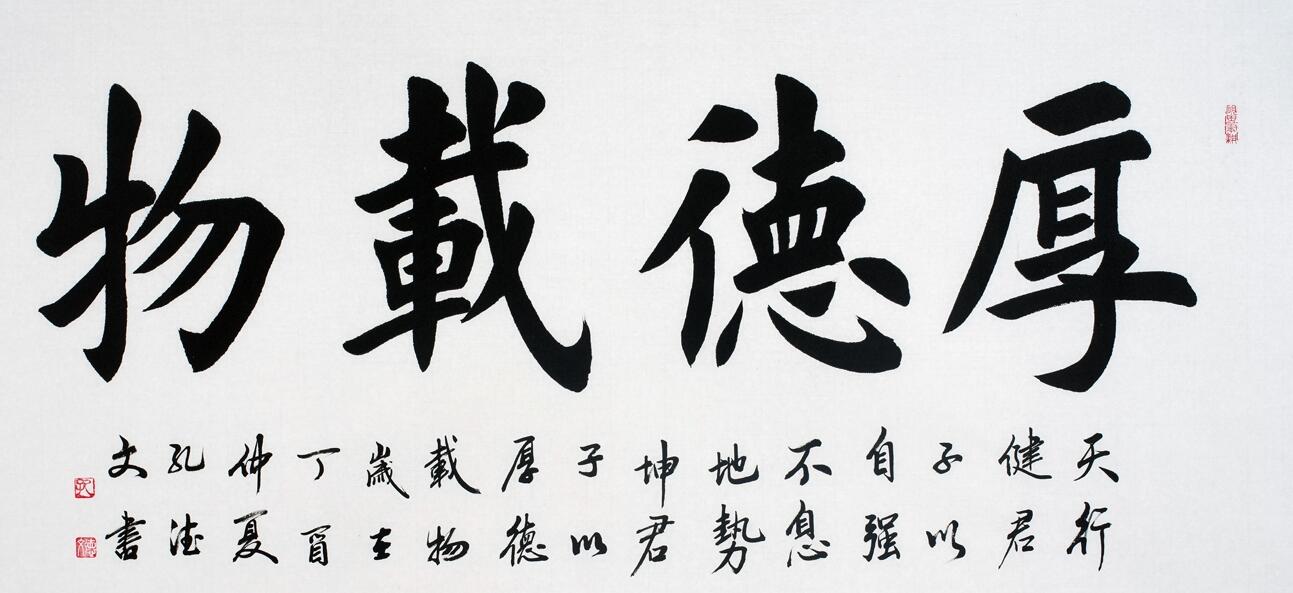 厚德載物
天行
健君
子以
自强
不息
地勢
坤君
子以
厚德
載物
歲在
丁酉
仲夏
孔德
文書